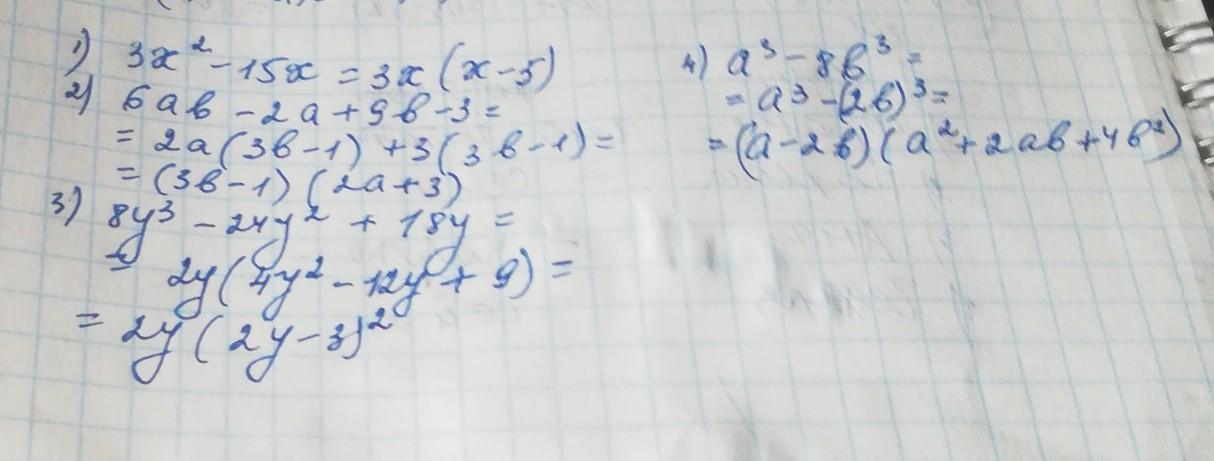 1) 3x² - 15x = 3x(x-5)
2) 6ab - 2a + 9b - 3 =
= 2a(3b-1) + 3(3b-1) =
= (3b-1)(2a+3)
3) 8y³ - 24y² + 18y =
= 2y(4y² - 12y + 9) =
= 2y(2y-3)²
4) a³ - 8b³ =
= a³ - (2b)³ =
= (a-2b)(a² + 2ab + 4b²)